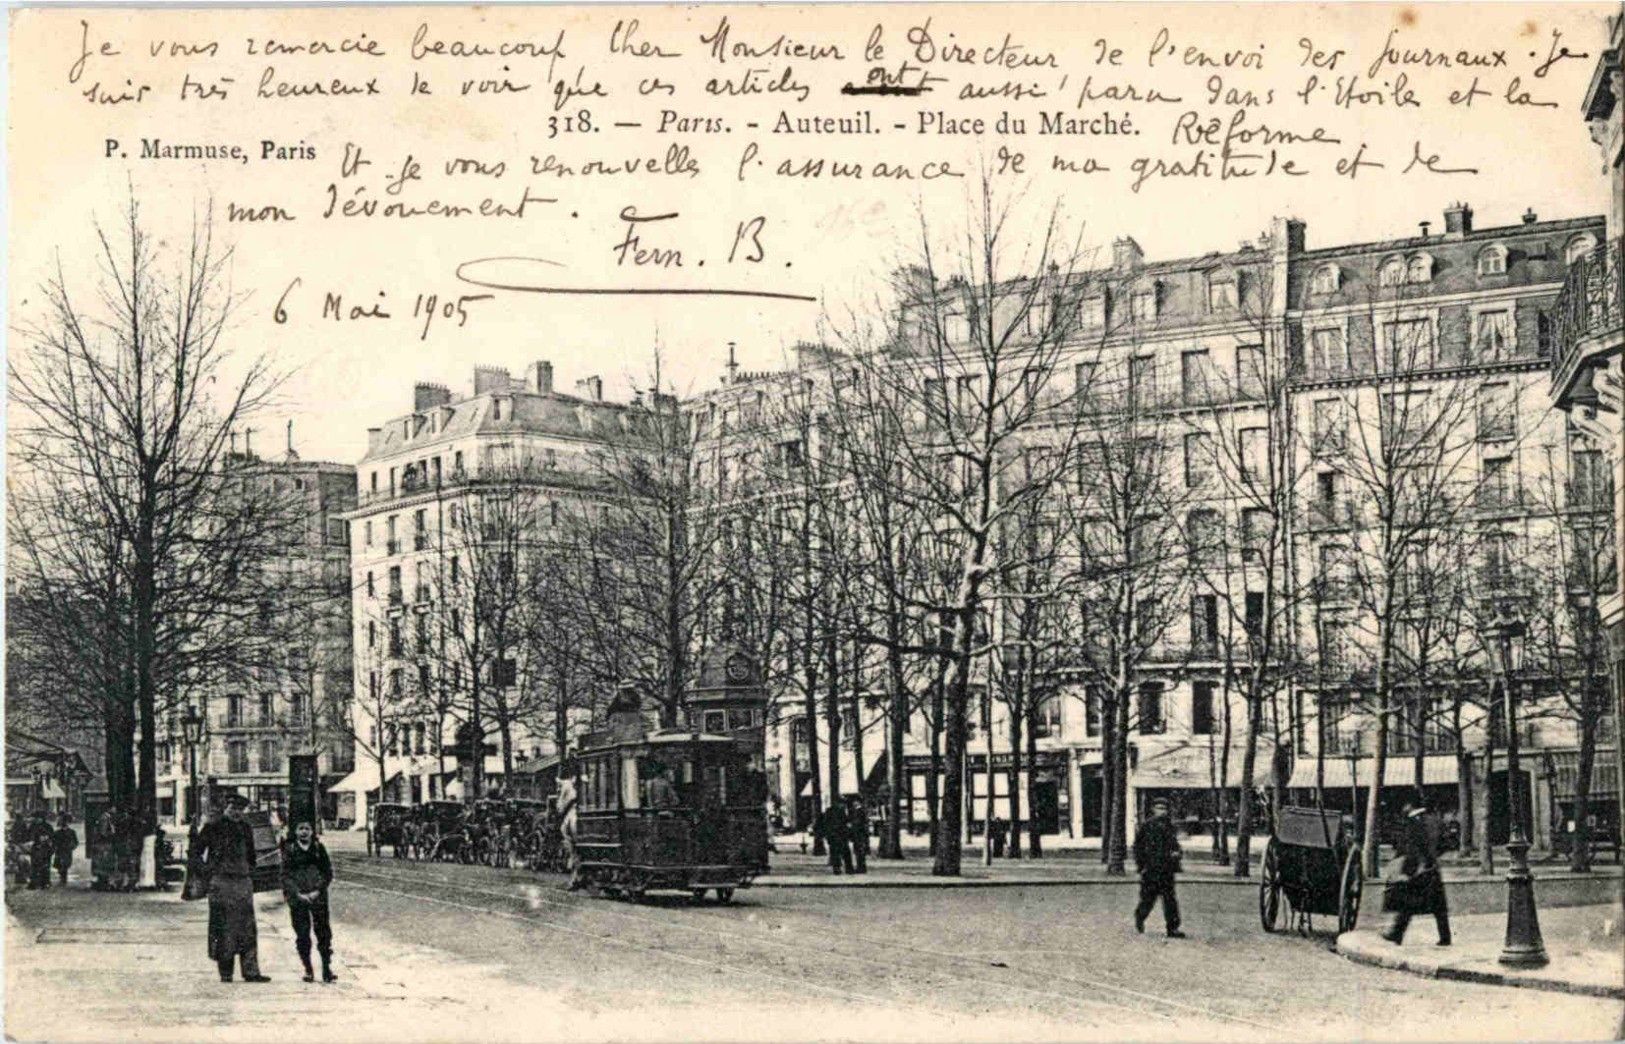 Je vous remercie beaucoup Cher Monsieur le Directeur de l'envoi des journaux. Je
suis très heureux de voir que ces articles ont aussi paru dans l'Etoile et la
318. — Paris. - Auteuil. - Place du Marché. Réforme
P. Marmuse, Paris Et je vous renouvelle l'assurance de ma gratitude et de
mon dévouement.
Fern. B.
6 Mai 1905